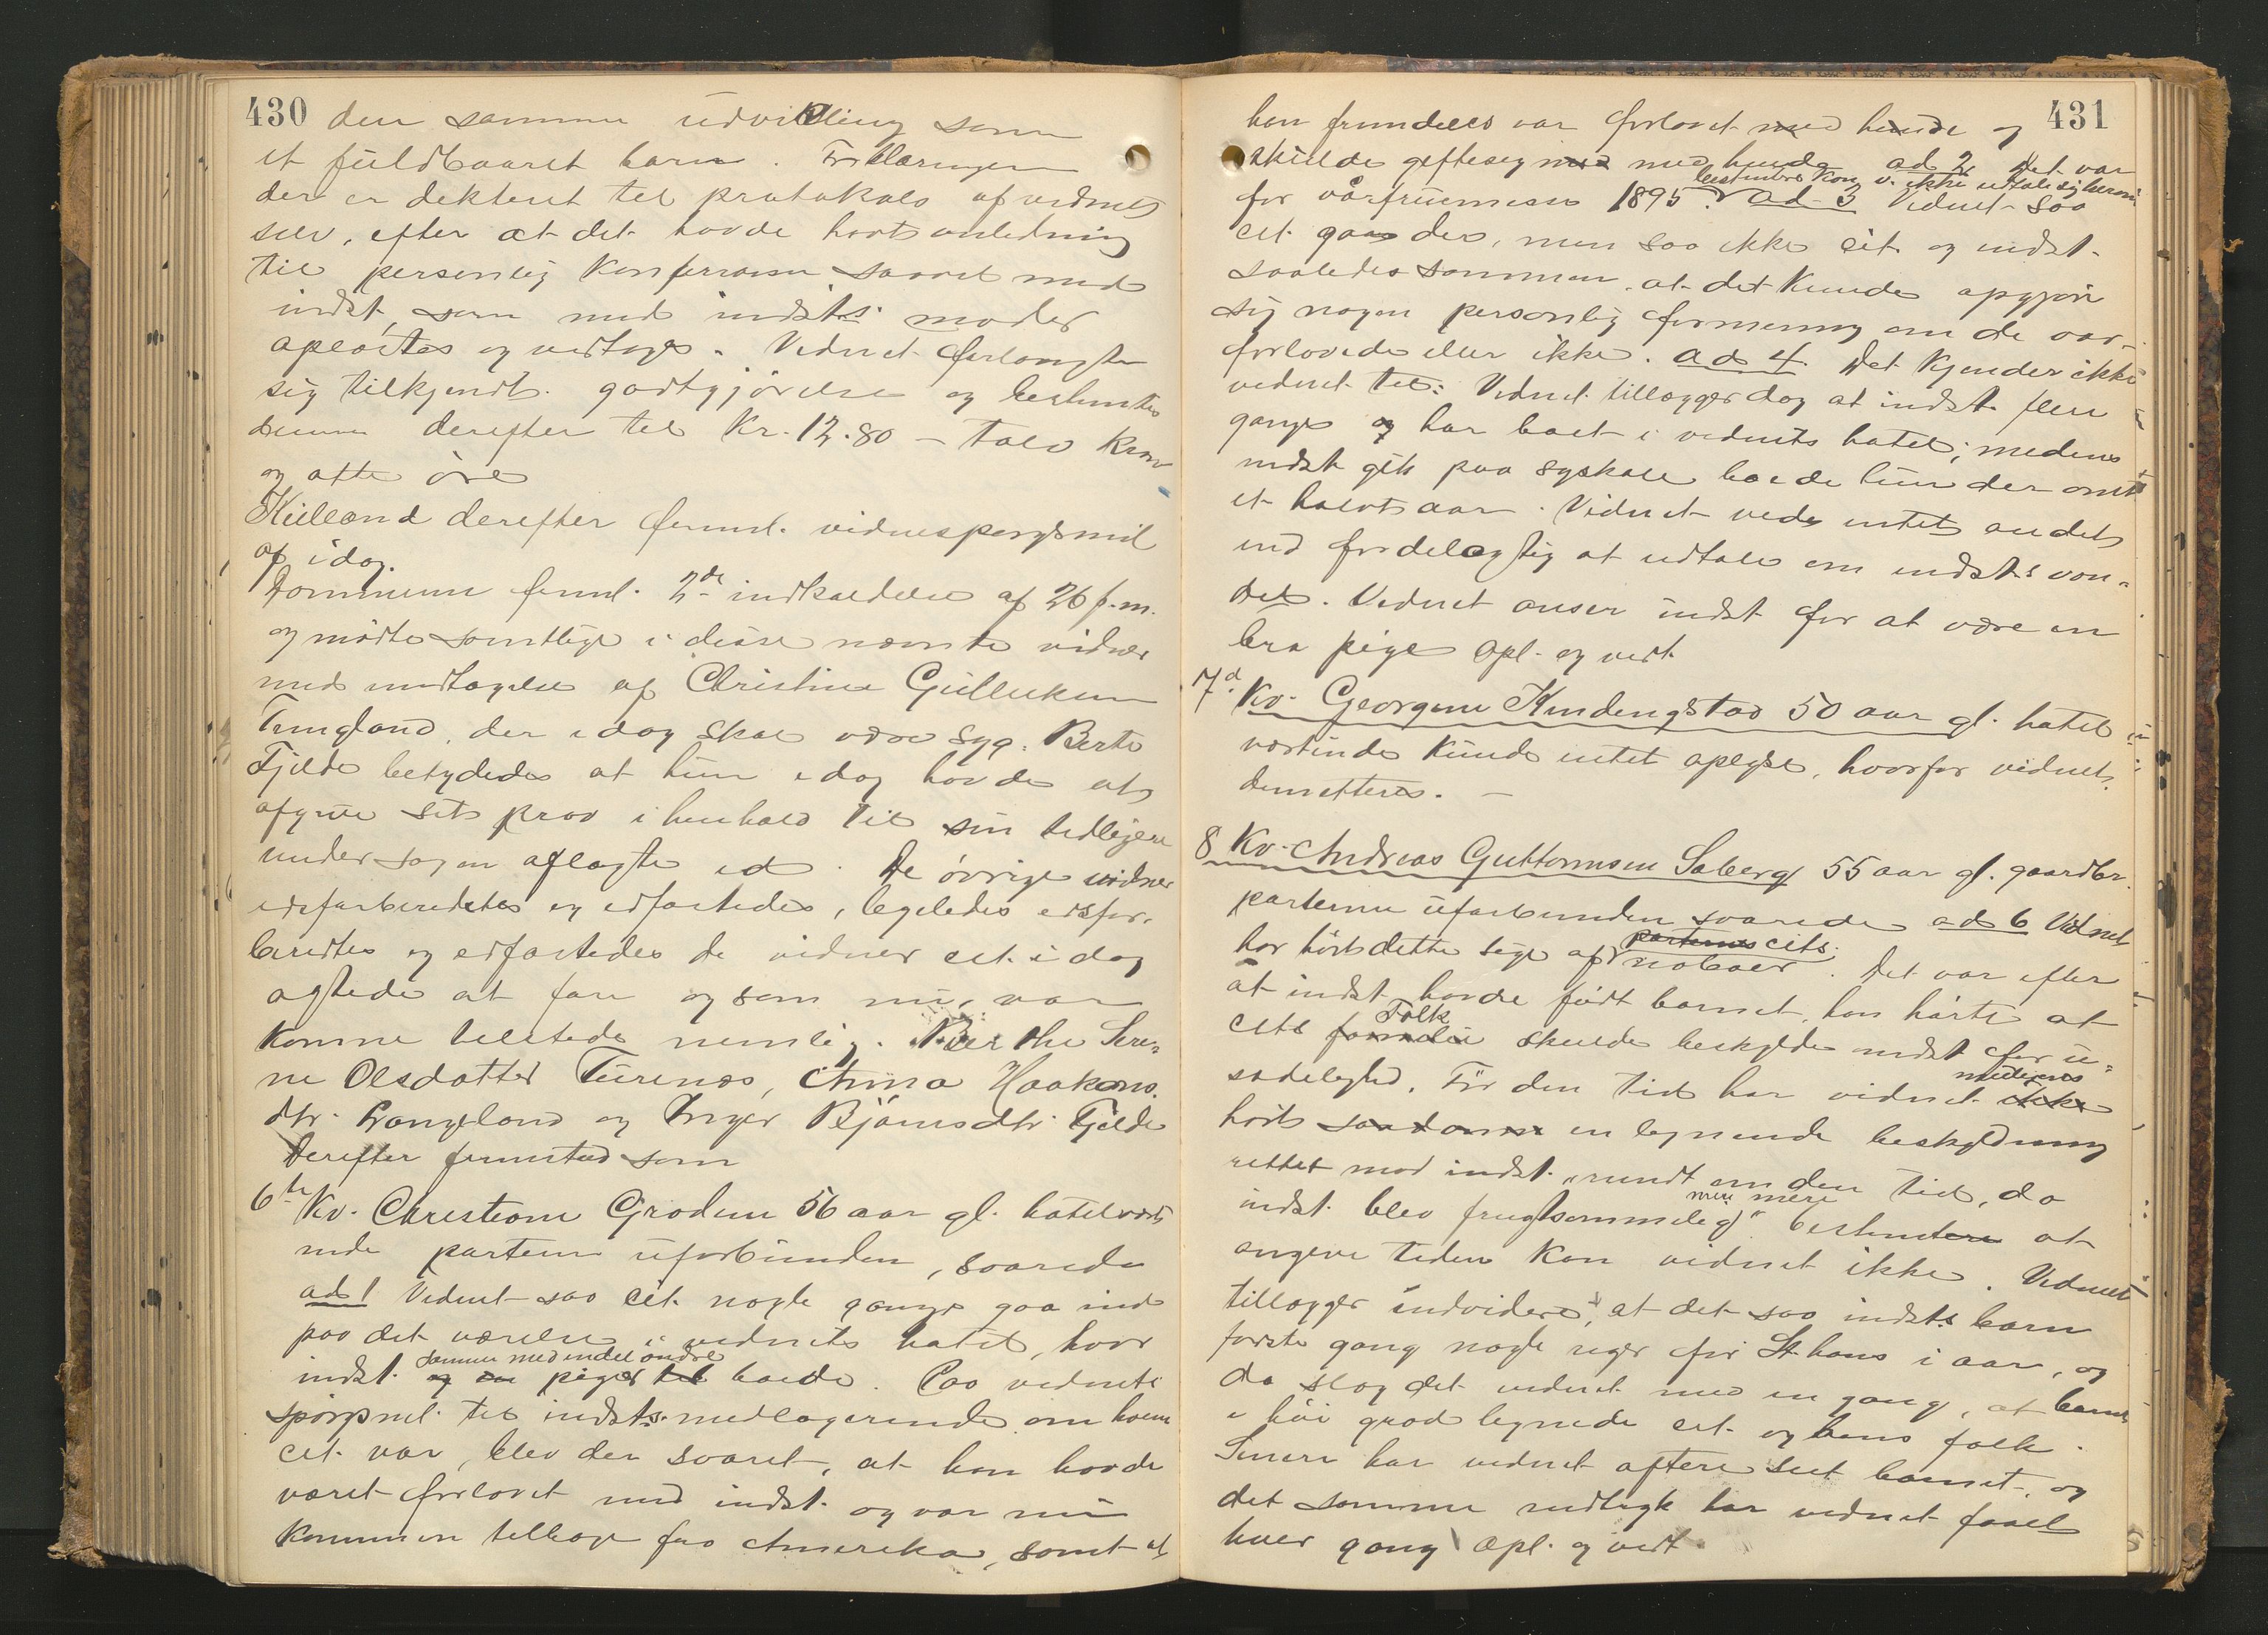 430
den samme udvikling som
et fuldbaaret barn. Forklaringen
der er dekteret til protokols af vidnet
selv, efter at det havde havt anledning
til personlig Konferranse saavel med
indst. som med indsts. moder
oplæstes og vedtoges. Vidnet forlangte
sig tilkjendt godtgjørelse og bestemtes
denne derefter til Kr. 12.80 - Tolv Kron
og otti øre
Kielland derefter freml. vidnespørgsmål
af idag.
Dommeren freml. 2den indkaldelse af 26 f.m.
og mødte samtlige i disse nævnte vidner
med undtagelse af Christine Gulleksen
Tungland, der idag skal være syg. Berte
Fjelde betydedes at hun idag havde at
afgive sit prov i henhold til sin tidligere
under sagen aflagte ed. De øvrige vidner
edsforberedtes og edfæstedes, ligeledes edsfor-
beredtes og edfæstedes de vidner cit. i dag
agtede at føre og som nu var
komne tilstede nemlig. Berthe Seri-
ne Olsdatter Turenes, Anna Haakons.
dtr. Langeland og Inger Bjørnsdtr. Fjelde
Derefter fremstod som
6te Kv. Christiane Grødem 56 aar gl. hotelværti
nde parterne uforbunden, svarede
ad 1 Vidnet saa cit. nogle gange gaa ind
paa det værelse i vidnets hotel, hvor
indst. sammen med endel andre piger boede. Paa vidnets
spørgsml. til indsts. medlogerende om hvem
cit. var, blev der svaret, at han havde
været forlovet med indst. og var nu
kommen tilbage fra Amerika, samt at
431
han fremdeles var forlovet med hende og
skulde giftesig med hende ad 2 Det var
før vårfruemesse 1895. bestemtere kan v. ikke udtale sig herom. ad 3 Vidnet saa
cit. gaa der, men saa ikke cit. og indst.
saaledes sammen, at det kunde opgjøre
sig nogen personlig formening om de var
forlovede eller ikke. ad 4. Det kjender ikke
vidnet til: Vidnet tillægger dog at indst. flere
gange har boet i vidnets hotel; medens
indst. gik paa syskole boede hun der omt
et halvt aar. Vidnet ved intet andet
end fordelagtig at udtale om indsts van-
del. Vidnet anser indst. for at være en
bra pige Opl. og vedt.
7de Kv. Georgine Kindingstad 50 aar gl. hotel
værtinde kunde intet oplyse, hvorfor vidnet
demitteres. -
8 Kv. Andreas Guttormsen Soberg 55 aar gl. gaardbr.
parterne uforbunden svarede ad 6 Vidnet
har hørt dette sige af parternes cits. naboer. Det var efter
at indst. havde født barnet, han hørte at
cits familie Folk skulde beskylde indst. for u-
sedelighed. Før den tid har vidnet ikke
hørt saadanne en lignende beskyldning
rettet mod indst. "rundt om den tid, da
indst. blev frugtsommelig" men mere bestemtere at
angive tiden kan vidnet ikke. Vidnet
tillægger endvidere, at det saa indsts barn
første gang nogle uger før St. hans i aar, og
da slog det vidnet med en gang, at barnet
i høi grad lignede cit. og hans folk.
Senere har vidnet oftere seet barnet, og
det samme indtryk har vidnet faaet
hver gang Opl. og vedt.